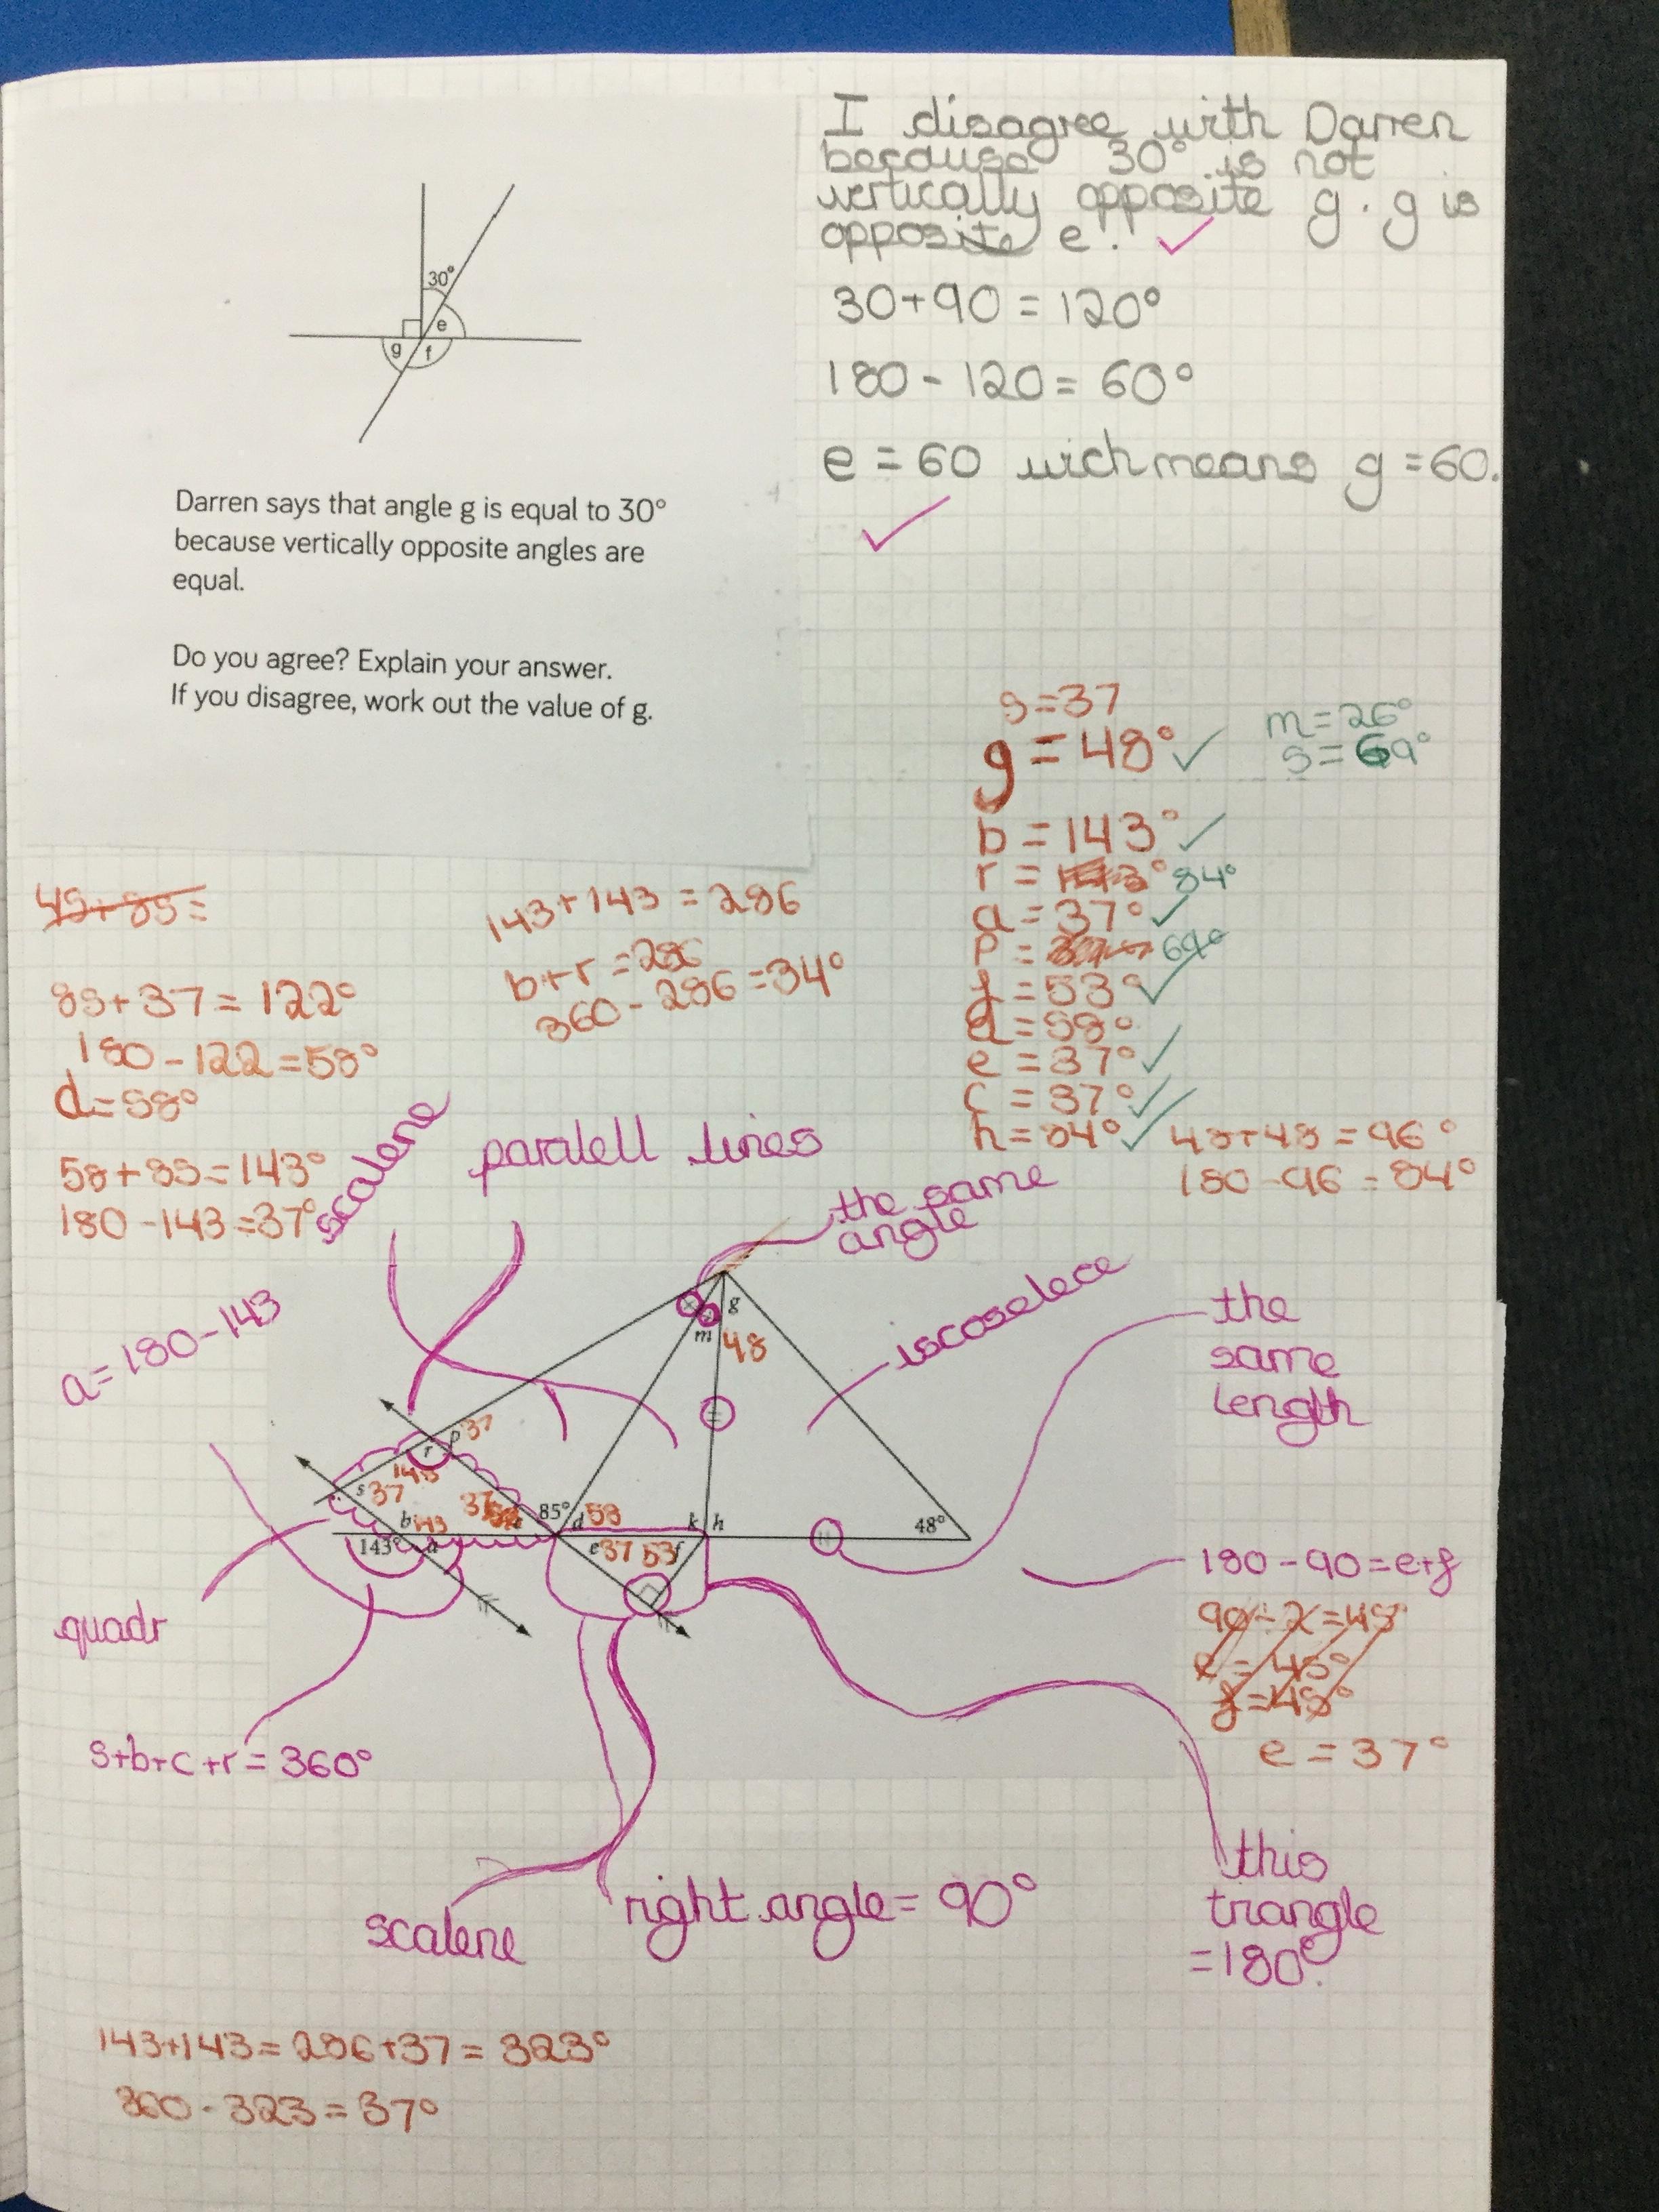 I disagree with Darren
because 30° is not
vertically opposite g. g is
opposite e.
30+90=120°
180-120=60°
e=60 wich means g=60.
30°
e
g
f
Darren says that angle g is equal to 30°
because vertically opposite angles are
equal.
Do you agree? Explain your answer.
If you disagree, work out the value of g.
s=37
g=48°
m=26°
s=69°
b=143°
r= 84°
a=37°
p= 69°
f=53°
d=58°
e=37°
c=37°
h=84°
48+48=96°
180-96=84°
85+37=122°
180-122=58°
d=58°
58+85=143°
180-143=37°
143+143=286
b+r=286
360-286=34°
scalene
paralell lines
the same
angle
iscoselece
the
same
length
a=180-143
g
m
48
p 37
r
143
s 37
b 143
37
85°
d 58
k h
48°
143° a
e 37 53 f
quadr
s+b+c+r=360°
180-90=e+f
90÷2=45°
e=45°
f=45°
e=37°
scalene
right angle=90°
this
triangle
=180°.
143+143=286+37=323°
360-323=37°